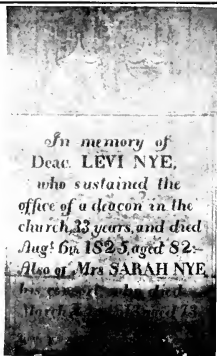 In memory of
Deac. LEVI NYE,
who sustained the
office of a deacon in the
church, 33 years, and died
Augt. 6th 1825, aged 82:
Also of Mrs SARAH NYE
his consort who died
March